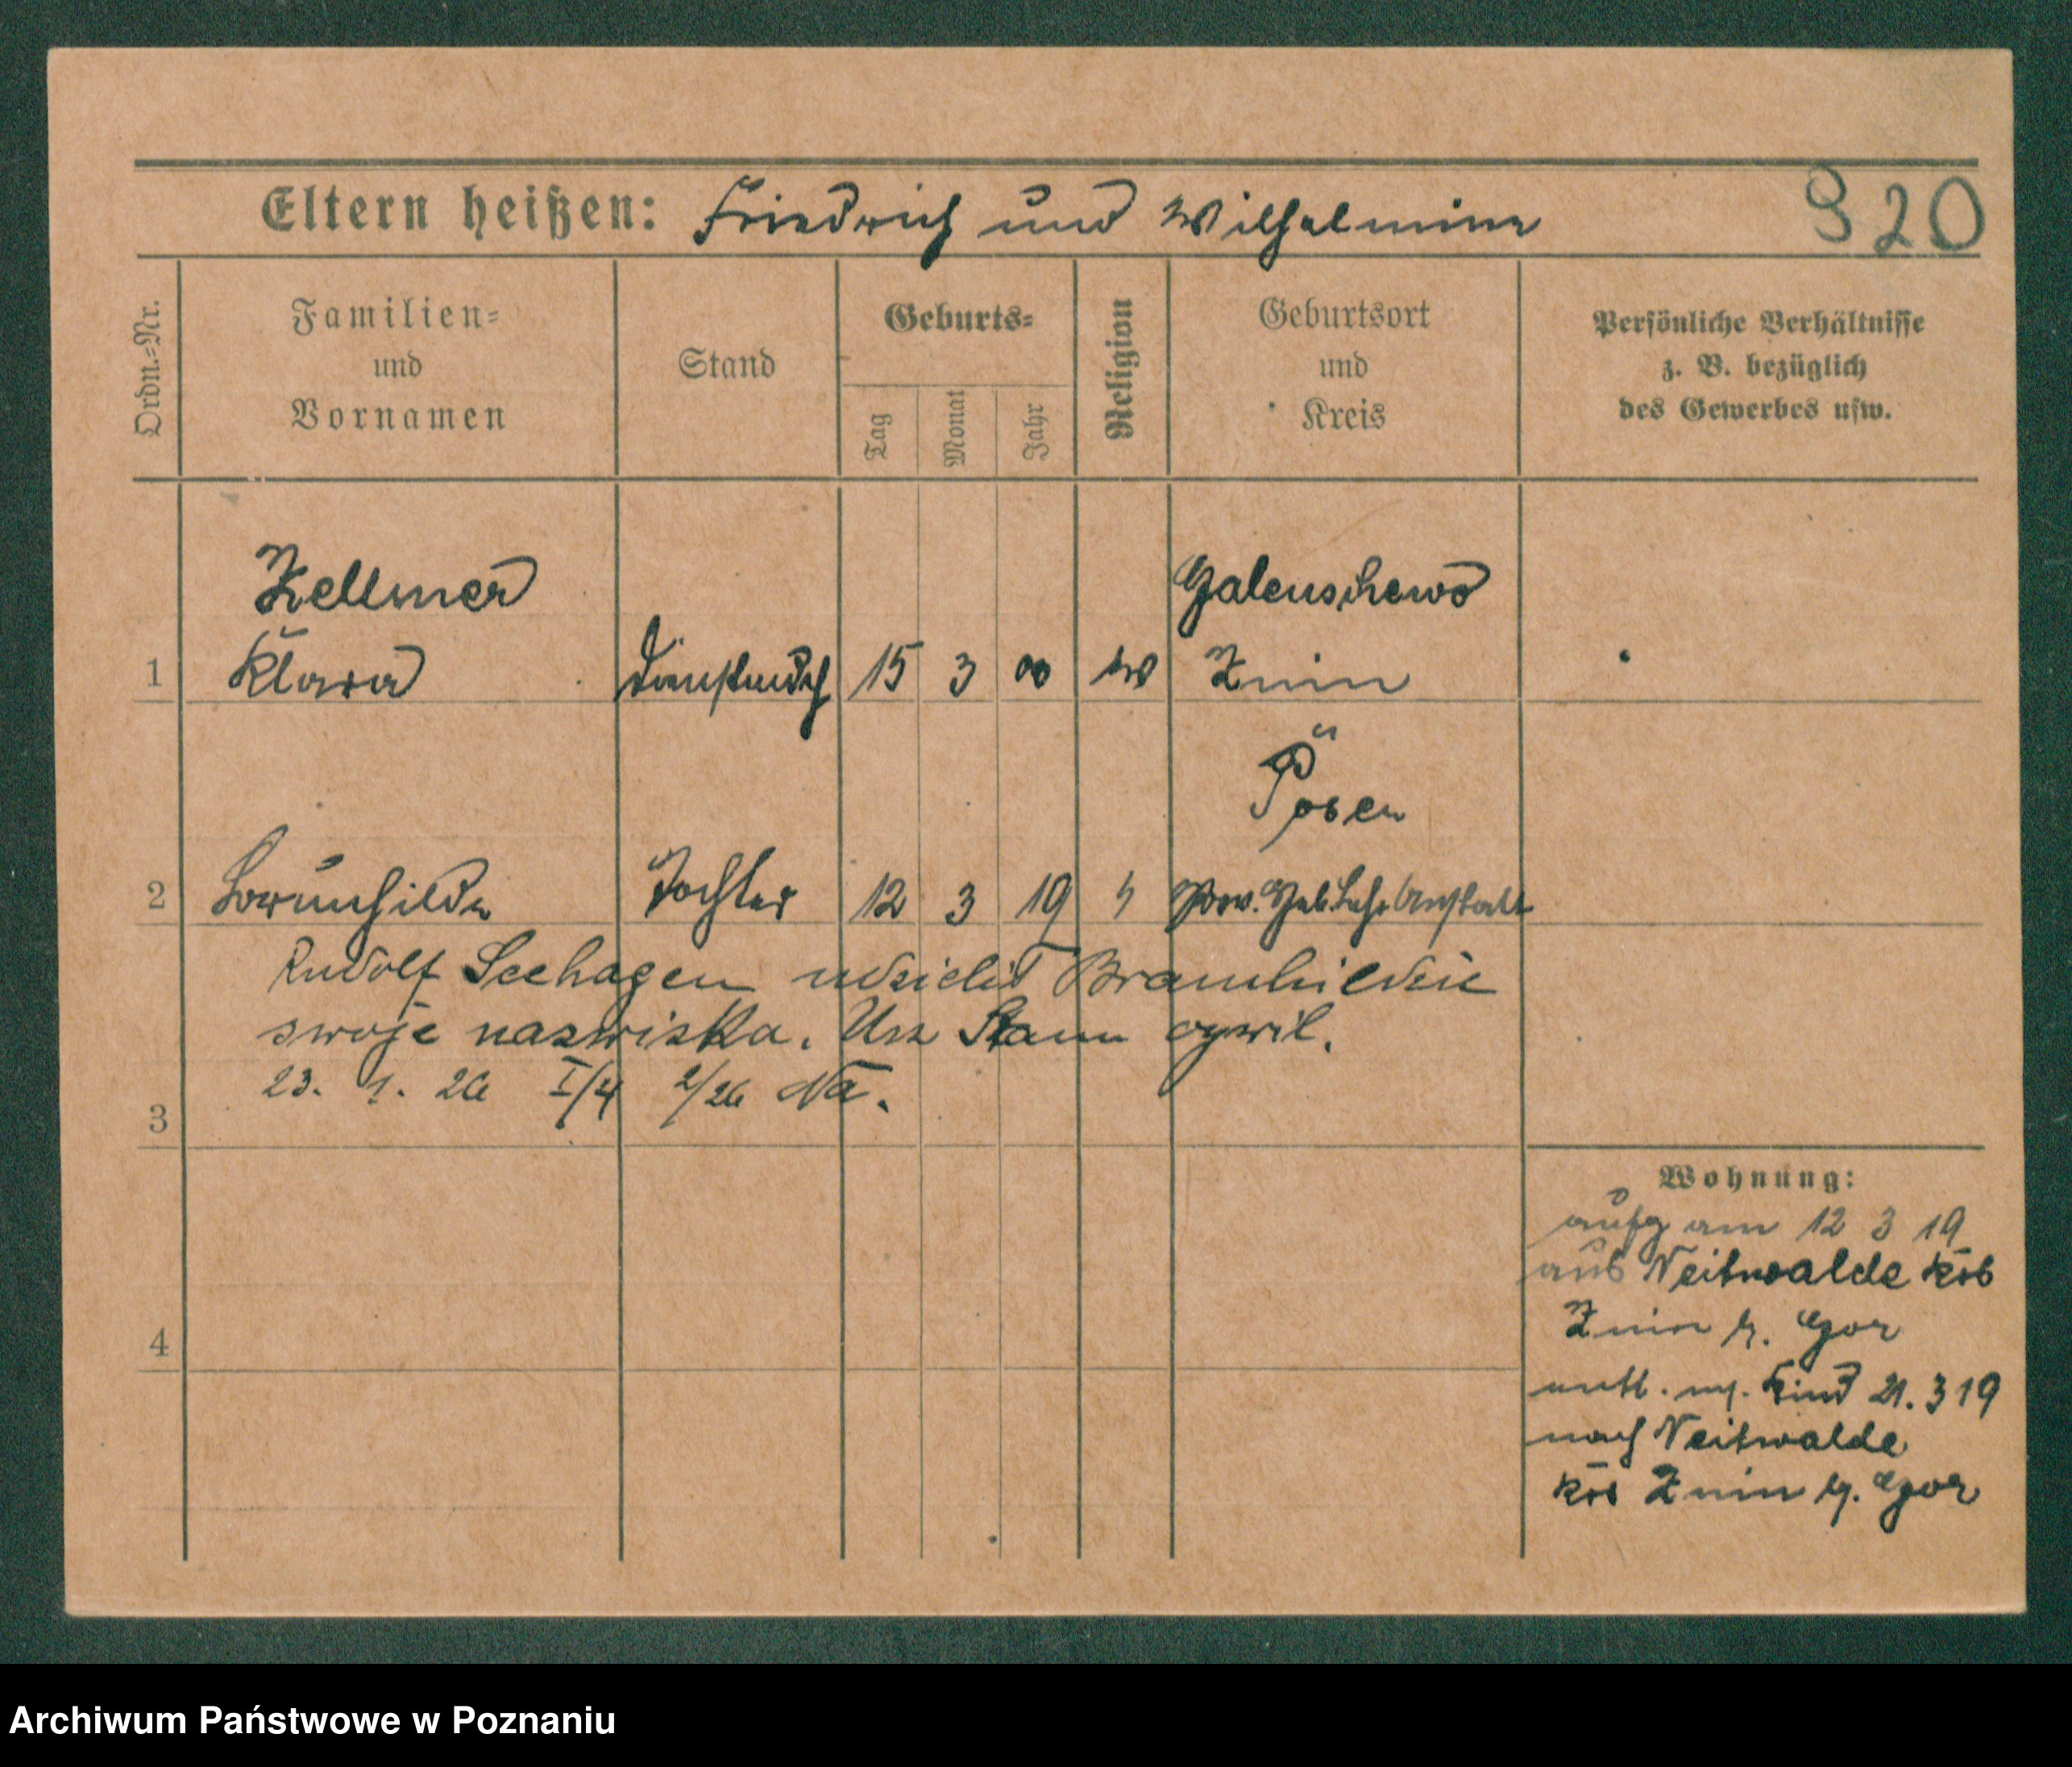 Eltern heißen: Friedrich und Wilhelmine
320
Ordn.=Nr.
Familien=
und
Vornamen
Stand
Geburts=
Tag
Monat
Jahr
Religion
Geburtsort
und
Kreis
Persönliche Verhältnisse
z. B. bezüglich
des Gewerbes usw.
Zellmer
Galenschewo
1 Klara 15 3 00 Znin
Posen
2 Brünhilde Tochter 12 3 19 Prov. Geb. Lehr Anstalt
Rudolf Seehagen udzielił Bramhildzie
swoje nazwiska. Urz Stanu cywil.
23. 1. 26 I/4 2/26 Na.
3
Wohnung:
aufg am 12 3 19
aus Veitwalde Krs
4
Znin
Kind 21. 3 19
nach Veitwalde
Krs Znin
Archiwum Państwowe w Poznaniu